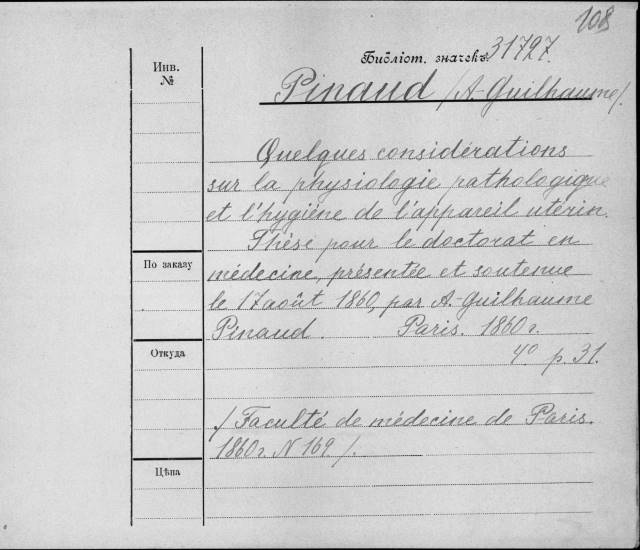 108
Библіот. значекъ 31727.
Инв.
№
Pinaud /A.-Guilhaume/.
Quelques considérations
sur la physiologie pathologique
et l'hygiène de l'appareil utérin.
Thèse pour le doctorat en
médecine, présentée et soutenue
le 17 août 1860, par A.-Guilhaume
Pinaud. Paris. 1860 г.
4° p. 31.
/Faculté de médecine de Paris.
1860 г. N 169./.
По заказу
Откуда
Цѣна